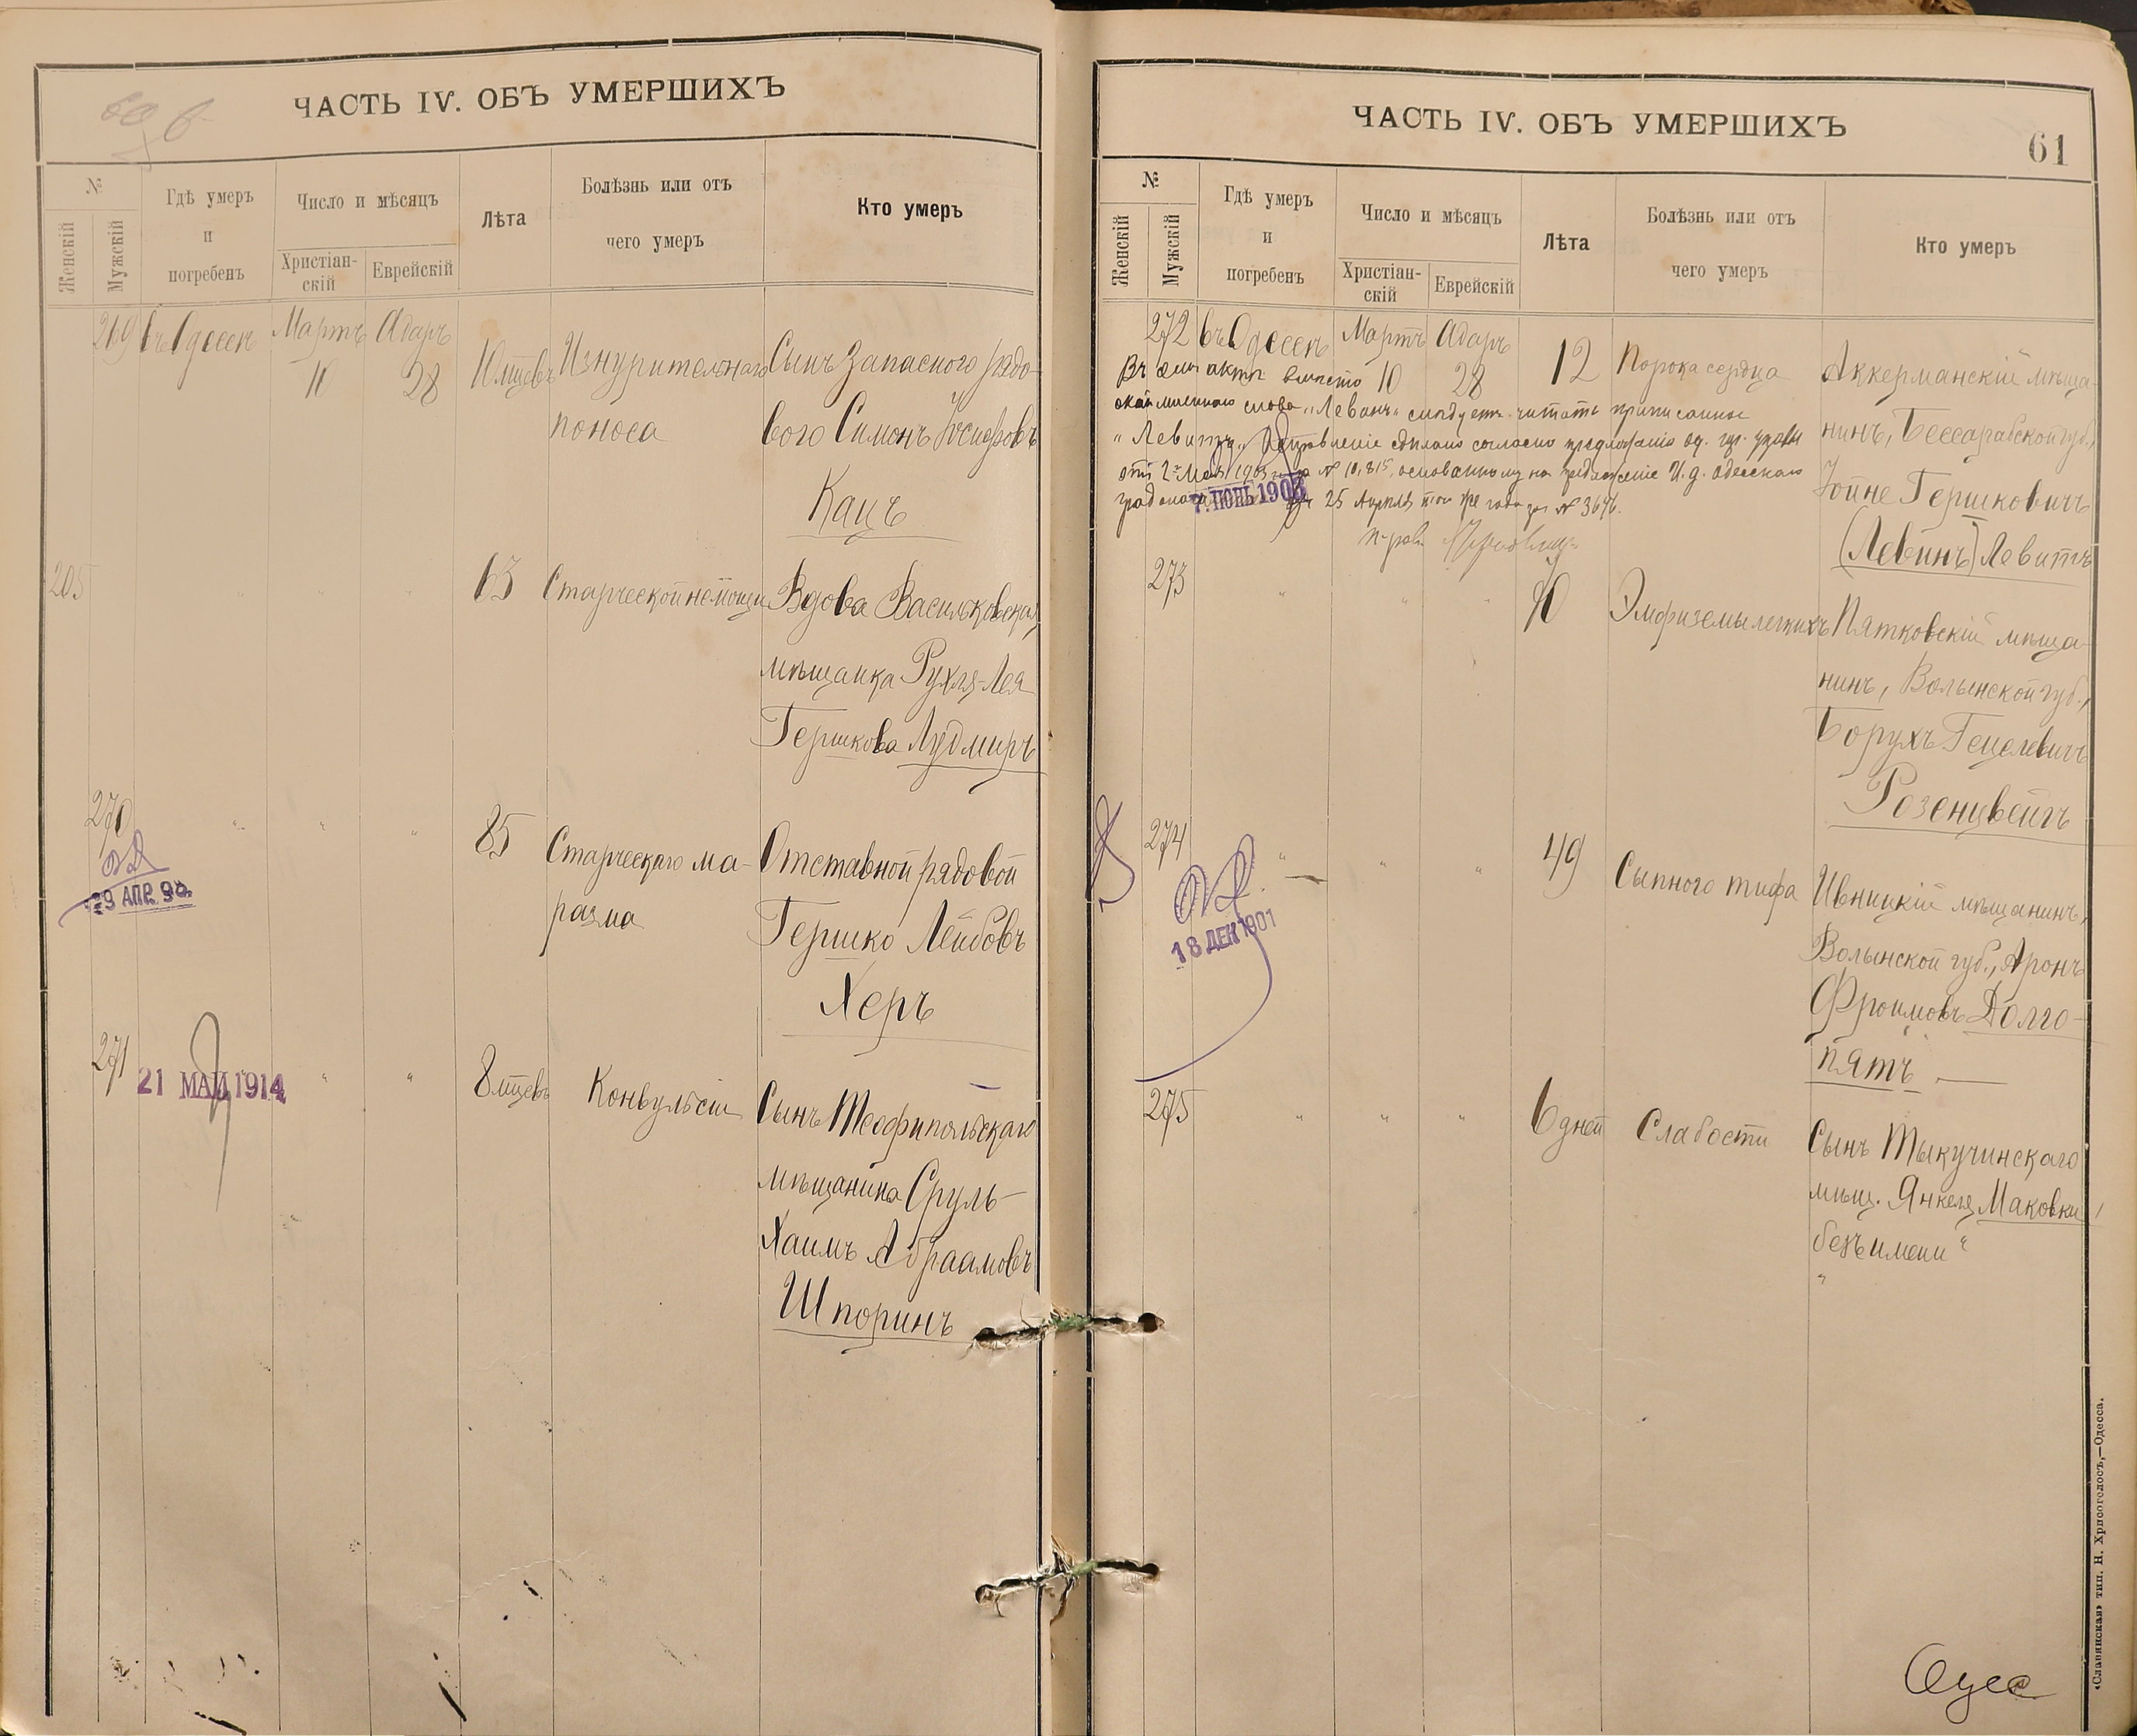 60 б
ЧАСТЬ IV. ОБЪ УМЕРШИХЪ
№
Женскій
Мужскій
Гдѣ умеръ
и
погребенъ
Число и мѣсяцъ
Христіан-
скій
Еврейскій
Лѣта
Болѣзнь или отъ
чего умеръ
Кто умеръ
269 въ Одессѣ Мартъ Адаръ 10 мцевъ Изнурительнаго Сынъ запасного рядо-
10 28 поноса вого Симонъ Іосифовъ
Кацъ
205 " " " 63 Старческой немощи Вдова Васильковская
мѣщанка Рухля-Лея
Гершкова Лудмиръ
270 " " " 85 Старческаго ма- Отставной рядовой
разма Гершко Лейбовъ
29 АПР. 98.
Херъ
271 " " 8 мцевъ Конвульсіи Сынъ Теофипольскаго
21 МАЙ 1914
мѣщанина Сруль-
Хаимъ Абраамовъ
Шпоринъ
ЧАСТЬ IV. ОБЪ УМЕРШИХЪ
61
№
Женскій
Мужскій
Гдѣ умеръ
и
погребенъ
Число и мѣсяцъ
Христіан-
скій
Еврейскій
Лѣта
Болѣзнь или отъ
чего умеръ
Кто умеръ
272 въ Одессѣ Мартъ Адаръ 12 Порока сердца Аккерманскій мѣща-
10 28 нинъ, Бессарабской губ.,
Іойне Гершковичъ
(Левинъ) Левитъ
Въ семъ актѣ вмѣсто
окаймленнаго слова "Левинъ" слѣдуетъ читать приписанное
"Левитъ". Исправленіе сдѣлано согласно предложенію од. гор. управы
отъ 2-го Мая 1903 г. за № 10,815, основанному на предложеніе И. д. одесскаго
градонач 25 Апрѣля того же года за № 3676.
7. ІЮНЬ 1903
273 " " " 70 Эмфиземы легкихъ Пятковскій мѣща-
нинъ, Волынской губ.,
Борухъ Гецелевичъ
Розенцвейгъ
274 " " " 49 Сыпного тифа Ивницкій мѣщанинъ,
Волынской губ., Аронъ
18 ДЕК 1901
Фроимовъ Долго-
пятъ
275 " " " 6 дней Слабости Сынъ Тыкучинскаго
мѣщ. Янкеля Маковки,
"безъ имени"
Одес
«Славянская» тип. Н. Хрисогелосъ,—Одесса.